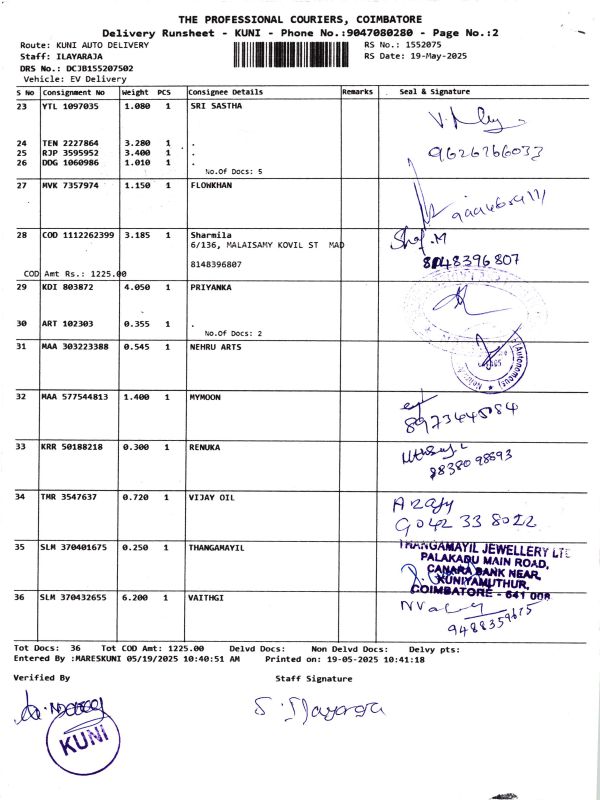 THE PROFESSIONAL COURIERS, COIMBATORE
Delivery Runsheet - KUNI - Phone No.:9047080280 - Page No.:2
Route: KUNI AUTO DELIVERY RS No.: 1552075
Staff: ILAYARAJA RS Date: 19-May-2025
DRS No.: DCJB155207502
Vehicle: EV Delivery
S No Consignment No Weight PCS Consignee Details Remarks Seal & Signature
23 YTL 1097035 1.080 1 SRI SASTHA
24 TEN 2227864 3.280 1 . 9626766033
25 RJP 3595952 3.400 1 .
26 DDG 1060986 1.010 1 .
No.Of Docs: 5
27 MVK 7357974 1.150 1 FLOWKHAN
28 COD 1112262399 3.185 1 Sharmila
6/136, MALAISAMY KOVIL ST MAD
8148396807 8148396807
COD Amt Rs.: 1225.00
29 KDI 803872 4.050 1 PRIYANKA
30 ART 102303 0.355 1 .
No.Of Docs: 2
31 MAA 303223388 0.545 1 NEHRU ARTS
(Autonomous)
32 MAA 577544813 1.400 1 MYMOON
8973445084
33 KRR 50188218 0.300 1 RENUKA
98380 98893
34 TMR 3547637 0.720 1 VIJAY OIL
9042 33 8022
35 SLM 370401675 0.250 1 THANGAMAYIL THANGAMAYIL JEWELLERY LTD
PALAKADU MAIN ROAD,
CANARA BANK NEAR,
KUNIYAMUTHUR,
COIMBATORE - 641 008
36 SLM 370432655 6.200 1 VAITHGI
9488359675
Tot Docs: 36 Tot COD Amt: 1225.00 Delvd Docs: Non Delvd Docs: Delvy pts:
Entered By :MARESKUNI 05/19/2025 10:40:51 AM Printed on: 19-05-2025 10:41:18
Verified By Staff Signature
S. Ilayaraja
KUNI